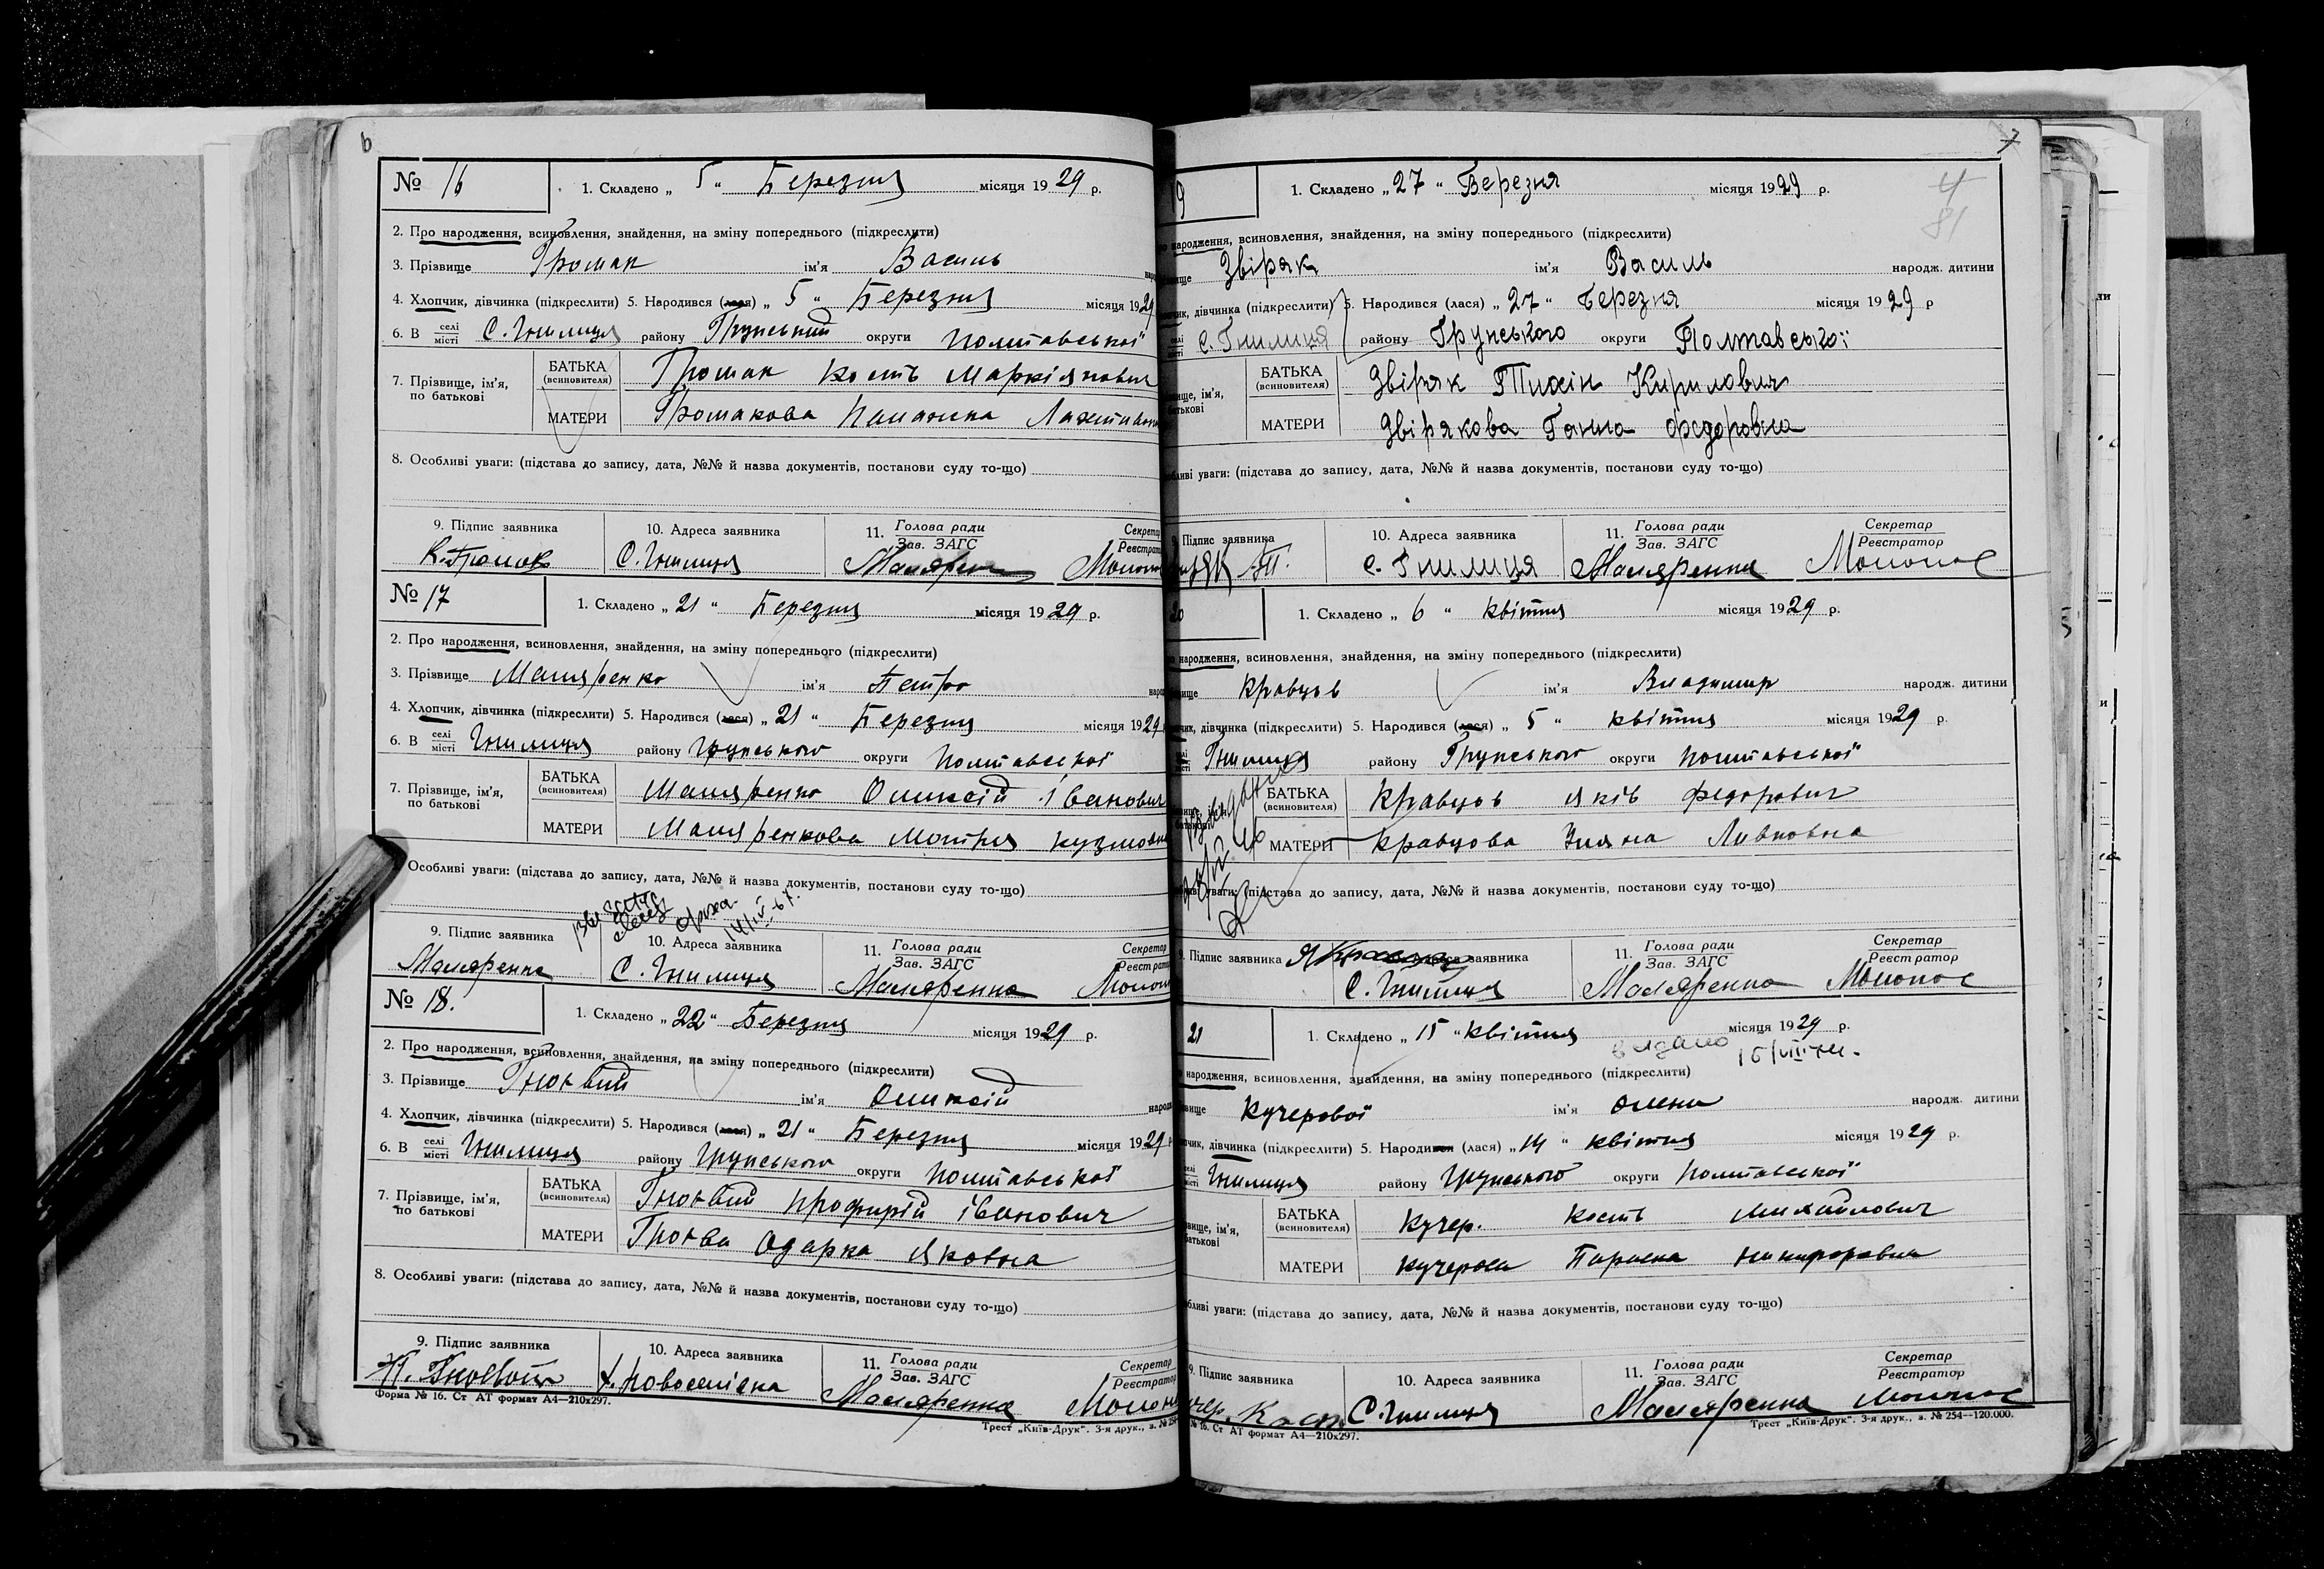 6
№ 16
1. Складено „ 5 “ Березня місяця 1929 р.
2. Про народження, всиновлення, знайдення, на зміну попереднього (підкреслити)
3. Прізвище Громак ім'я Василь
4. Хлопчик, дівчинка (підкреслити) 5. Народився (лася) „ 5 “ Березня місяця 1929
6. В селі місті С. Гнилиця району Грунський округи Полтавської
7. Прізвище, ім'я, по батькові
БАТЬКА (всиновителя) Громак Кость Маркіянович
МАТЕРИ Громакова Палажка
8. Особливі уваги: (підстава до запису, дата, №№ й назва документів, постанови суду то-що)
9. Підпис заявника 10. Адреса заявника 11. Голова ради Зав. ЗАГС Секретар Реєстратор
К. Громак С. Гнилиця Маляренко
№ 17
1. Складено „ 21 “ Березня місяця 1929 р.
2. Про народження, всиновлення, знайдення, на зміну попереднього (підкреслити)
3. Прізвище Маляренко ім'я Петро
4. Хлопчик, дівчинка (підкреслити) 5. Народився (лася) „ 21 “ Березня місяця 1929
6. В селі місті Гнилиця району Грунського округи Полтавської
7. Прізвище, ім'я, по батькові
БАТЬКА (всиновителя) Маляренко Оликсій Іванович
МАТЕРИ Маляренкова Мотря Кузмовна
Особливі уваги: (підстава до запису, дата, №№ й назва документів, постанови суду то-що)
14/IV-67.
9. Підпис заявника 10. Адреса заявника 11. Голова ради Зав. ЗАГС Секретар Реєстратор
Маляренко С. Гнилиця Маляренко
№ 18.
1. Складено „ 22 “ Березня місяця 1929 р.
2. Про народження, всиновлення, знайдення, на зміну попереднього (підкреслити)
3. Прізвище ім'я Оликсій
4. Хлопчик, дівчинка (підкреслити) 5. Народився (лася) „ 21 “ Березня місяця 1929
6. В селі місті Гнилиця району Грунського округи Полтавської
7. Прізвище, ім'я, по батькові
БАТЬКА (всиновителя) Профирій Іванович
МАТЕРИ Одарка Яковна
8. Особливі уваги: (підстава до запису, дата, №№ й назва документів, постанови суду то-що)
9. Підпис заявника 10. Адреса заявника 11. Голова ради Зав. ЗАГС Секретар Реєстратор
Маляренко
Форма № 16. Ст АТ формат А4—210х297.
Трест „Київ-Друк“. 3-я друк., з. № 254
7
4
81
9
1. Складено „ 27 “ Березня місяця 1929 р.
народження, всиновлення, знайдення, на зміну попереднього (підкреслити)
Звіряк ім'я Василь народж. дитини
дівчинка (підкреслити) 5. Народився (лася) „ 27 “ Березня місяця 1929 р
с. Гнилиця району Грунського округи Полтавської
БАТЬКА (всиновителя) Звіряк Тихін Кирилович
МАТЕРИ Звірякова Ганна Федоровна
уваги: (підстава до запису, дата, №№ й назва документів, постанови суду то-що)
Підпис заявника 10. Адреса заявника 11. Голова ради Зав. ЗАГС Секретар Реєстратор
с. Гнилиця Маляренко
20
1. Складено „ 6 “ Квітня місяця 1929 р.
народження, всиновлення, знайдення, на зміну попереднього (підкреслити)
Кравцов ім'я Владимир народж. дитини
дівчинка (підкреслити) 5. Народився (лася) „ 5 “ Квітня місяця 1929 р.
Гнилиця району Грунського округи Полтавської
БАТЬКА (всиновителя) Кравцов Яків Федорович
МАТЕРИ Кравцова Уляна
уваги: (підстава до запису, дата, №№ й назва документів, постанови суду то-що)
9. Підпис заявника заявника 11. Голова ради Зав. ЗАГС Секретар Реєстратор
С. Гнилиця Маляренко
21
1. Складено „ 15 “ Квітня місяця 1929 р.
видано
народження, всиновлення, знайдення, на зміну попереднього (підкреслити)
Кучерової ім'я Олени народж. дитини
дівчинка (підкреслити) 5. Народився (лася) „ 14 “ Квітня місяця 1929 р.
Гнилиця району Грунського округи Полтавської
БАТЬКА (всиновителя) Кучер. Кость Михайлович
МАТЕРИ Кучерова Параска Никифоровна
уваги: (підстава до запису, дата, №№ й назва документів, постанови суду то-що)
9. Підпис заявника 10. Адреса заявника 11. Голова ради Зав. ЗАГС Секретар Реєстратор
С. Гнилиця Маляренко
№ 16. Ст АТ формат А4—210х297.
Трест „Київ-Друк“. 3-я друк., з. № 254—120.000.